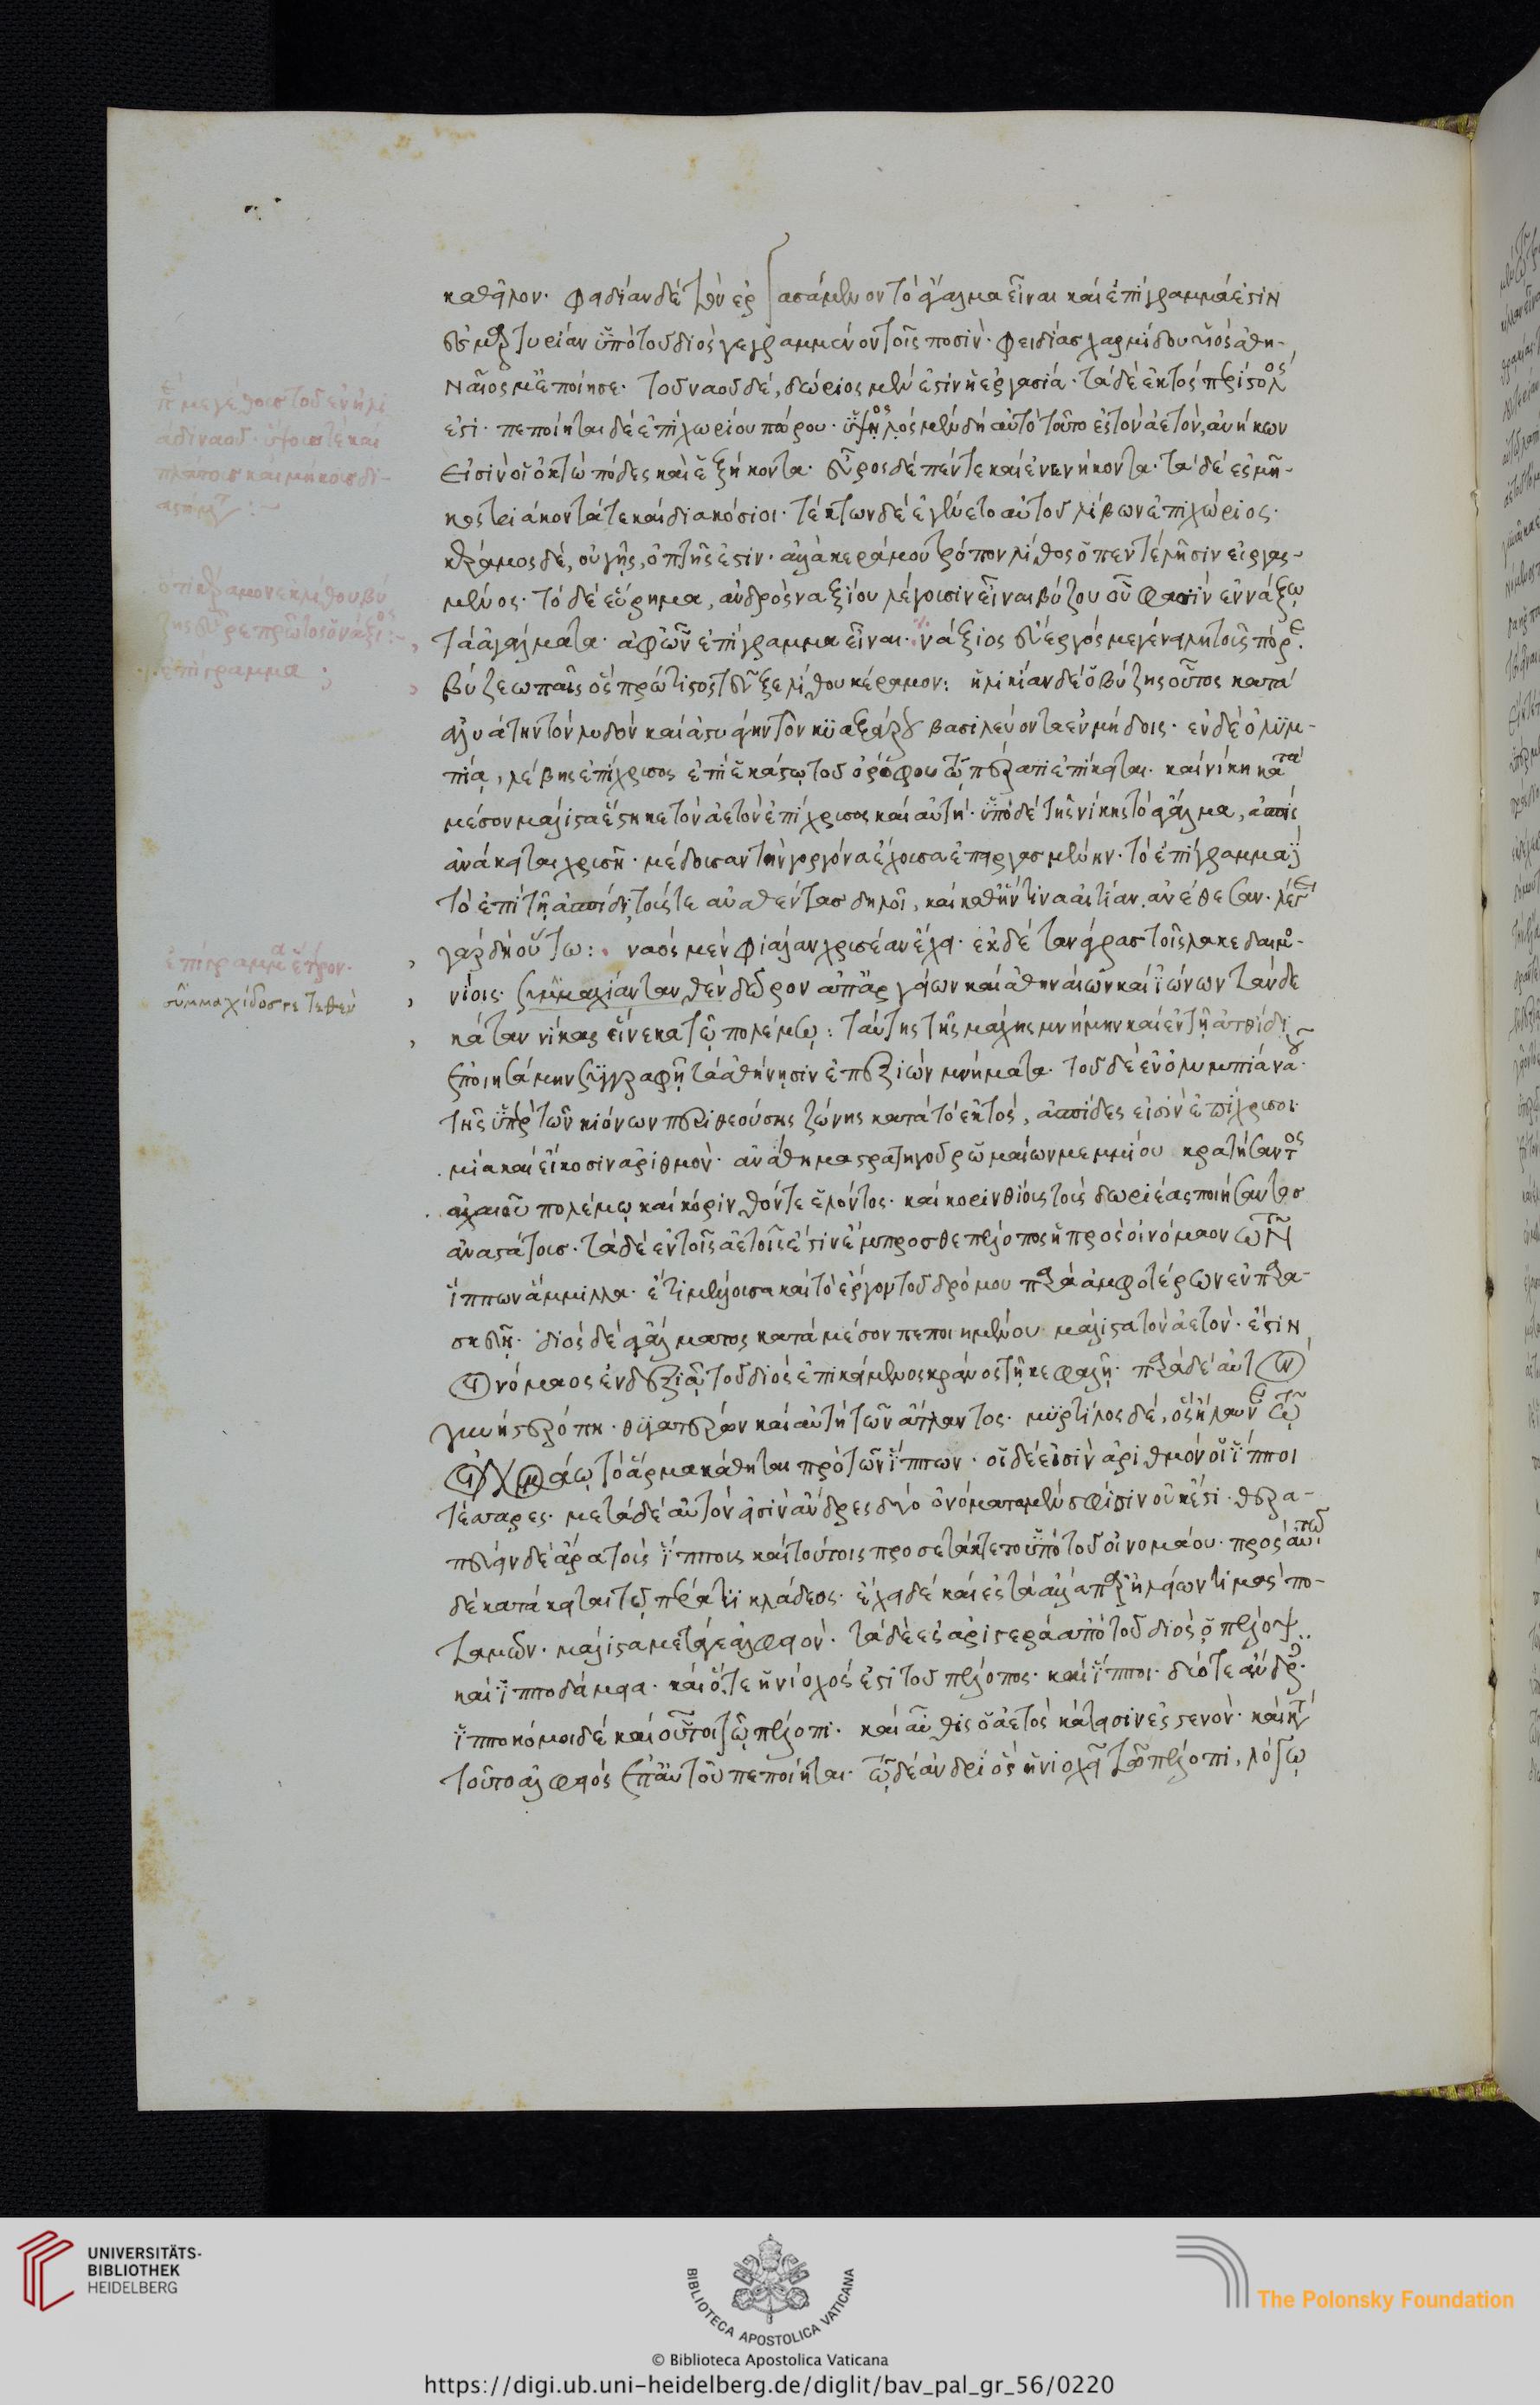 καθεῖλον. φειδίαν δὲ τὸν ἐργασάμενον τὸ ἄγαλμα εἶναι καὶ ἐπίγραμμά ἐστιν
ἐς μαρτυρίαν ὑπὸ τοῦ διὸς γεγραμμένον τοῖς ποσίν. φειδίας χαρμίδου υἱὸς ἀθη-
ναῖος μ' ἐποίησε. τοῦ ναοῦ δὲ, δώριος μέν ἐστιν ἡ ἐργασία. τὰ δὲ ἐκτὸς περίστυλός
ἐστι. πεποίηται δὲ ἐπιχωρίου πώρου. ὕψος μὲν δὴ αὐτοῦ τὸ ἐς τὸν ἀετὸν, ἀνήκων
εἰσὶν οἱ ὀκτὼ πόδες καὶ ἑξήκοντα. εὖρος δὲ πέντε καὶ ἐνενήκοντα. τὰ δὲ ἐς μῆ-
κος τριάκοντά τε καὶ διακόσιοι. τέκτων δὲ ἐγένετο αὐτοῦ λίβων ἐπιχώριος.
κέραμος δὲ, οὐ γῆς, ὀπτῆς ἐστιν. ἀλλὰ κεράμου τρόπον λίθος ὁ πεντέλησιν εἰργας-
μένος. τὸ δὲ εὕρημα, ἀνδρὸς ναξίου λέγουσιν εἶναι βύζου οὗ φασὶν ἐν νάξῳ
τὰ ἀγάλματα. ἀφ' ὧν ἐπίγραμμα εἶναι. νάξιος εὔεργός με γένει λητοῖς πόρε.
βύζεω παῖς ὃς πρώτιστος τεῦξε λίθου κέραμον: ἡλικίαν δὲ ὁ βύζης οὗτος κατὰ
ἀλυάτην τὸν λυδὸν καὶ ἀστυάγην τὸν κυαξάρου βασιλεύοντα ἐν μήδοις. ἐν δὲ ὀλυμ-
πίᾳ, λέβης ἐπίχρυσος ἐπὶ ἑκάστῳ τοῦ ὀρόφου τῷ πέρατι ἐπίκειται. καὶ νίκη κατὰ
μέσον μάλιστα ἕστηκε τὸν ἀετὸν ἐπίχρυσος καὶ αὐτή. ὑπὸ δὲ τῆς νίκης τὸ ἄγαλμα, ἀσπὶς
ἀνάκειται χρυσῆ. μέδουσαν τὴν γοργόνα ἔχουσα ἐπειργασμένην. τὸ ἐπίγραμμα δὲ
τὸ ἐπὶ τῇ ἀσπίδι τούς τε ἀναθέντας δηλοῖ, καὶ καθ' ἥντινα αἰτίαν ἀνέθεσαν. λέγει
γὰρ δὴ οὕτω: ναὸς μὲν φιάλαν χρυσέαν ἔχει. ἐκ δὲ τανάγρας τοὶ λακεδαιμο-
νίοις. συμμαχίαν ταν θὲν δῶρον ἀπ' ἀργείων καὶ ἀθηναίων καὶ ἰώνων τὰν δε
κάταν νίκας εἵνεκα τῷ πολέμῳ: ταύτης τῆς μάχης μνήμην καὶ ἐν τῇ ἀτθίδι
ἐποιησάμην συγγραφῇ τὰ ἀθήνησιν ἐπεξιὼν μνήματα. τοῦ δὲ ἐν ὀλυμπίᾳ ναοῦ
τῆς ὑπὲρ τῶν κιόνων περιθεούσης ζώνης κατὰ τὸ ἐκτὸς, ἀσπίδες εἰσὶν ἐπίχρυσοι
μία καὶ εἴκοσιν ἀριθμὸν. ἀνάθημα στρατηγοῦ ῥωμαίων μεμμίου κρατήσαντος
ἀχαιοῦ πολέμῳ καὶ κόρινθόν τε ἑλόντος. καὶ κορινθίοις τοὺς δωριέας ποιήσαντος
ἀναστάτους. τὰ δὲ ἐν τοῖς ἀετοῖς ἐστὶν ἔμπροσθε πέλοπος ἡ πρὸς οἰνόμαον τῶν
ἵππων ἅμιλλα. ἔτι μέλλουσα καὶ τὸ ἔργον τοῦ δρόμου παρὰ ἀμφοτέρων ἐν παρα-
σκευῇ. διὸς δὲ ἀγάλματος κατὰ μέσον πεποιημένου μάλιστα τὸν ἀετόν. ἔστιν
οἰνόμαος ἐν δεξιᾷ τοῦ διὸς ἐπικείμενος κράνος τῇ κεφαλῇ. παρὰ δὲ αὐτὸν
γυνὴ στερόπη. θυγατέρων καὶ αὐτὴ τῶν ἄτλαντος. μυρτίλος δὲ, ὃς ἤλαυνε τῷ
οἰνομάῳ τὸ ἅρμα κάθηται πρὸ τῶν ἵππων. οἱ δέ εἰσιν ἀριθμὸν οἱ ἵπποι
τέσσαρες. μετὰ δὲ αὐτόν εἰσιν ἄνδρες δύο ὀνόματα μέν σφισιν οὐκ ἔστι. θερα-
πεύειν δὲ ἄρα τοὺς ἵππους καὶ τούτοις προσετέτακτο ὑπὸ τοῦ οἰνομάου. πρὸς αὐτῷ
δὲ κατάκειται τῷ πέρατι κλάδεος. ἔχει δὲ καὶ ἐς τὰ ἄλλα παρ' ἠλείων τιμὰς πο-
ταμῶν. μάλιστα μετά γε ἀλφειόν. τὰ δὲ ἐς ἀριστερὰ ἀπὸ τοῦ διὸς, ὁ πέλοψ.
καὶ ἱπποδάμεια. καὶ ὅ τε ἡνίοχός ἐστι τοῦ πέλοπος. καὶ ἵπποι. δύο τε ἄνδρες.
ἱπποκόμοι δὲ καὶ οὗτοι τῷ πέλοπι. καὶ αὖθις ὁ ἀετὸς κάτεισιν ἐς στενὸν. καὶ κατὰ
τοῦτο ἀλφειὸς ἐπ' αὐτοῦ πεποίηται. τῷ δὲ ἀνδρὶ ὃς ἡνιοχεῖ τῷ πέλοπι, λόγῳ
περὶ μεγέθους τοῦ ἐν ἠλι
άδι ναοῦ. ὕψους τὲ καὶ
πλάτους καὶ μήκους δι-
ὅτι κέραμον ἐκ λίθου βύ
ζης εὗρε πρῶτος ὁ νάξιος:~
ἐπίγραμμα
ἐπίγραμμα ἕτερον.
σύμμαχίδος τε τεθεν
UNIVERSITÄTS-
BIBLIOTHEK
HEIDELBERG
BIBLIOTECA APOSTOLICA VATICANA
The Polonsky Foundation
© Biblioteca Apostolica Vaticana
https://digi.ub.uni-heidelberg.de/diglit/bav_pal_gr_56/0220